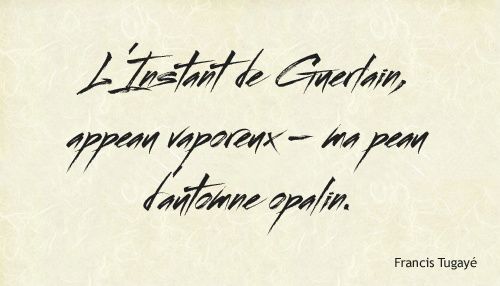 L'Instant de Guerlain,
appeau vaporeux – ma peau
d'automne opalin.
Francis Tugayé